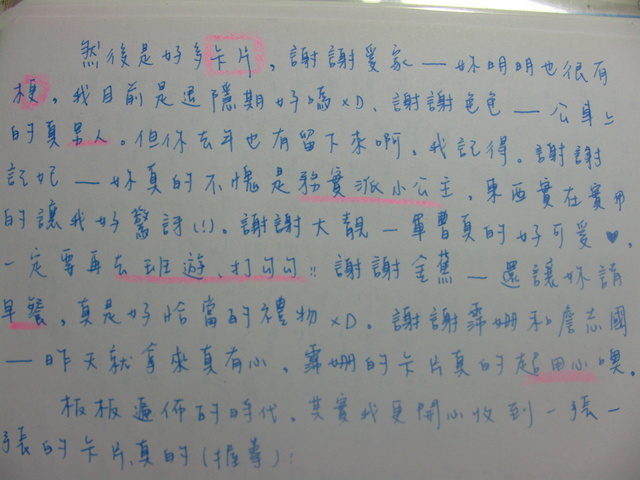 然後是好多卡片,謝謝愛家—妳明明也很有
梗,我目前是退隱期好嗎xD、謝謝色色—公車上
的真男人。但你去年也有留下來啊,我記得。謝謝
記妃—妳真的不愧是務實派小公主,東西實在實用
的讓我好驚訝(!)。謝謝大靚—軍曹真的好可愛♥,
一定要再去班遊,打勾勾!!謝謝金蕉—還讓妳請
早餐,真是好恰當的禮物xD。謝謝霈姍和詹志國
—昨天就拿來真有心、霈姍的卡片真的超用心噢。
板板遍佈的時代,其實我更開心收到一張一
張的卡片、真的(握拳)!